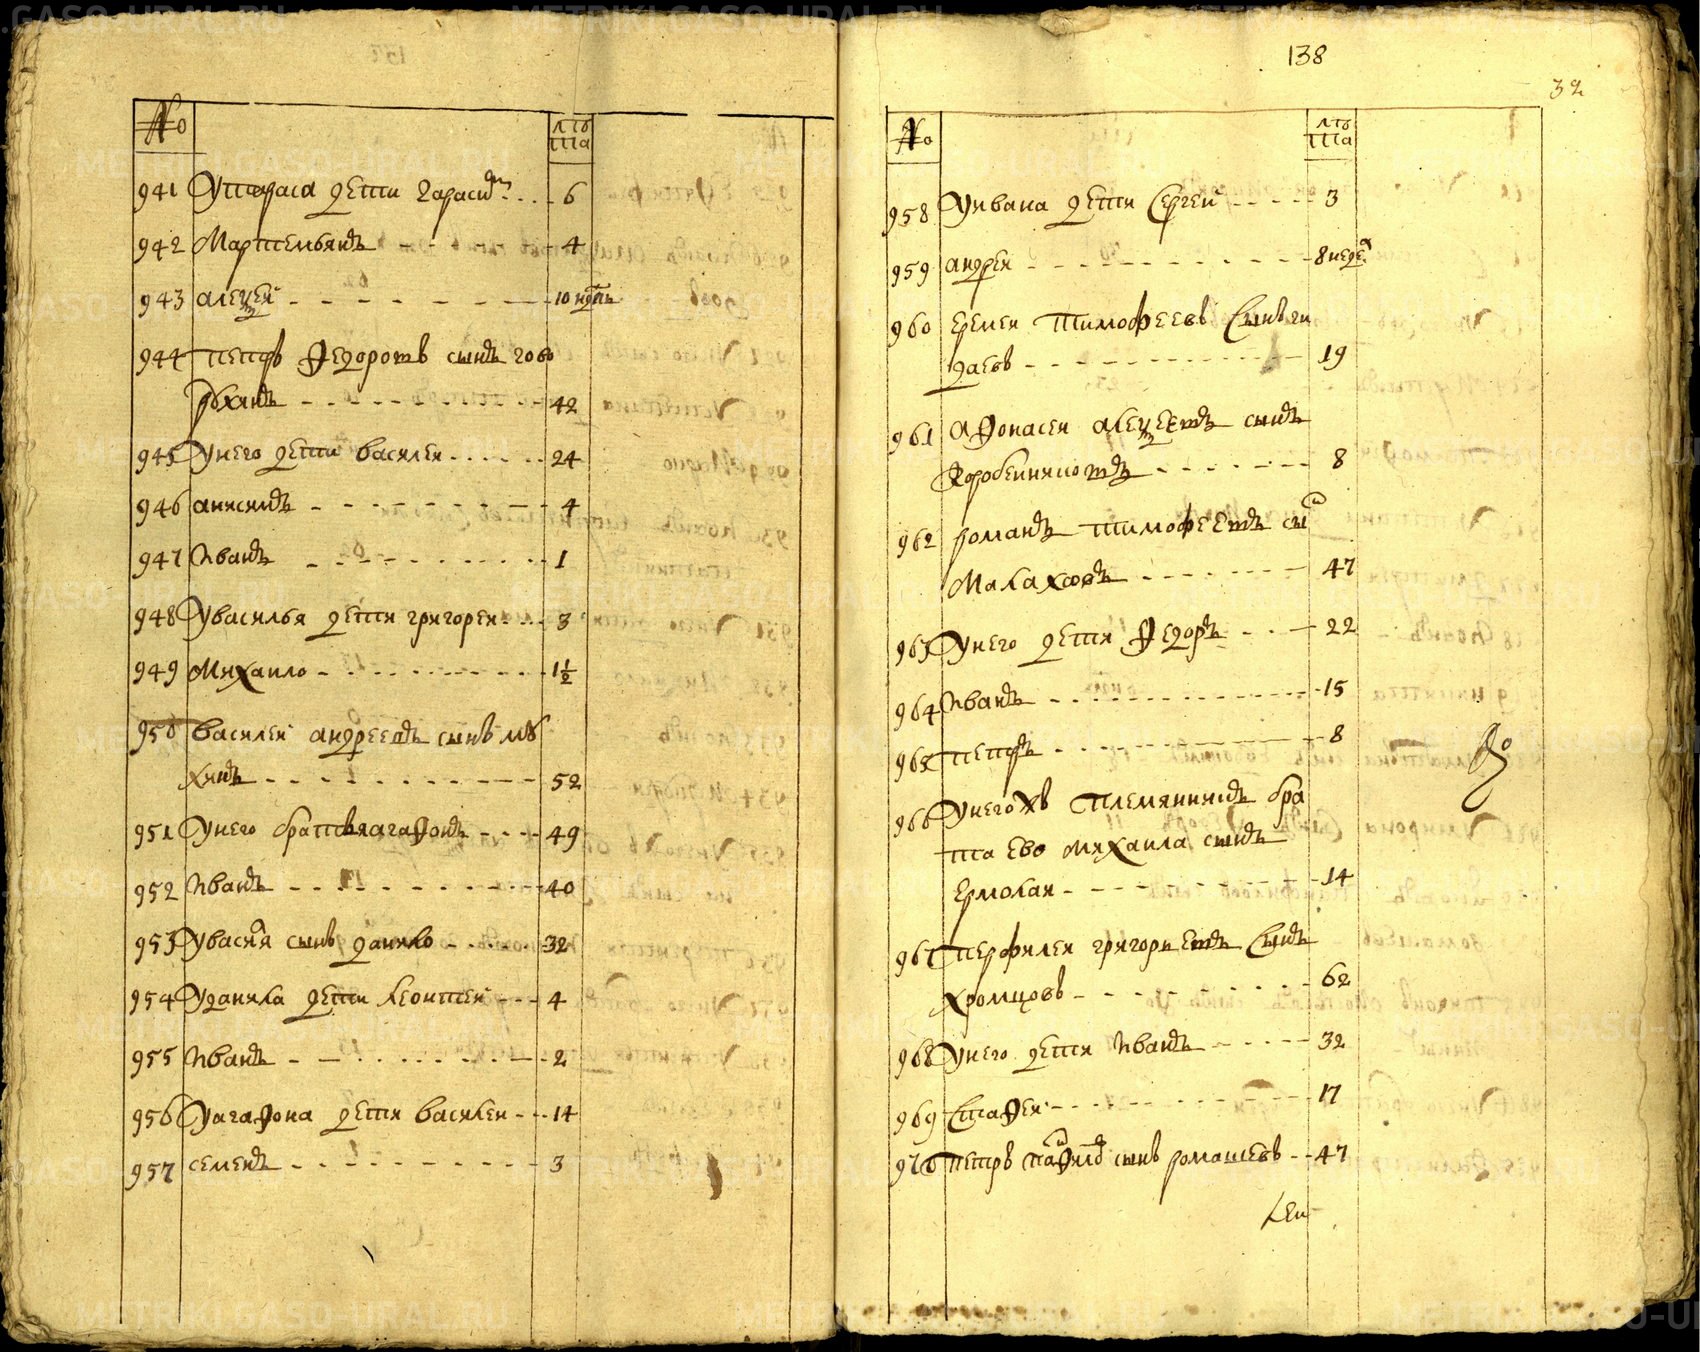 №
лѣ
та
941 У тараса дети Гарасим 6
942 Мартемьянъ 4
943 алеѯей 10 нђль
944 петръ Федоротъ сынъ гово
рухинъ 42
945 У него дети василеи 24
946 анисимъ 4
947 Иванъ 1
948 У василья дети григореи 3
949 Михаило 1½
950 василеи андреевъ сынъ мѹ
хинъ 52
951 У него братья агафонъ 49
952 Иванъ 40
953 У васи​лья сынъ данило 32
954 У данила дети леонтей 4
955 Иванъ 2
956 У агафона дети василеи 14
957 семенъ 3
138
32
№
лѣ
та
958 У ивана дети Сергеи 3
959 андреи 8 неде
960 еремеи тимофеевъ сынъ
19
961 афонасеи алеѯеевъ сынъ
Коробейниковъ 8
962 романъ тимофеевъ сы
Малаховъ 47
963 У него дети Федоръ 22
964 Иванъ 15
965 петръ 8
966 У него хъ племянникъ бра
та ево михаила сынъ
Ермолаи 14
967 перфилеи григорьевъ сынъ
хромцовъ 62
968 У него дети Иванъ 32
969 Стафеи 17
970 петръ сынъ ромашевъ 47